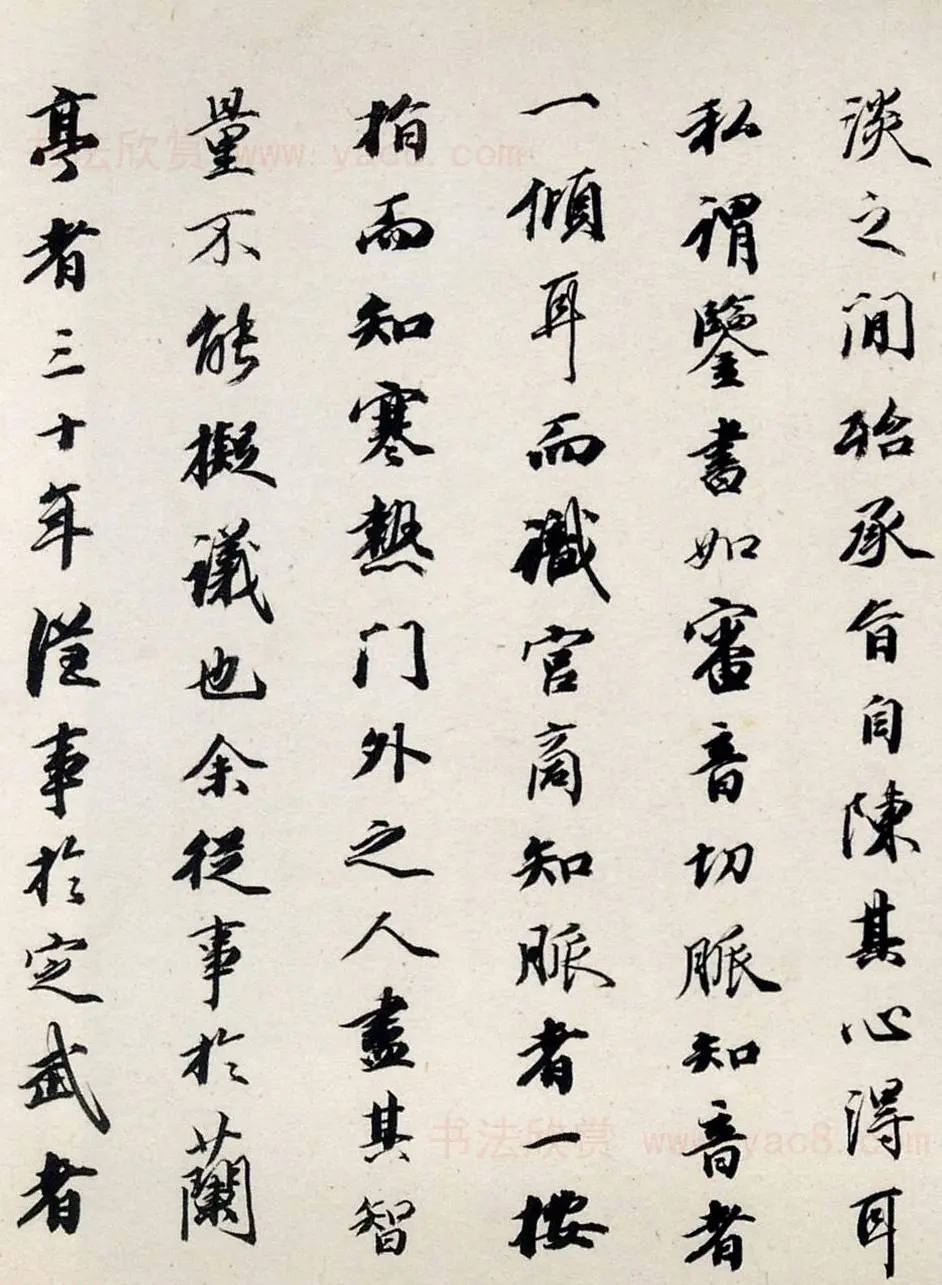 淡之間殆承旨自陳其心得耳
私謂鑒書如審音切脈知音者
一傾耳而識宮商知脈者一按
指而知寒熱門外之人盡其智
量不能擬議也余從事於蘭
亭者三十年從事於定武者
书法欣赏 www.yac8.com
书法欣赏 www.yac8.com